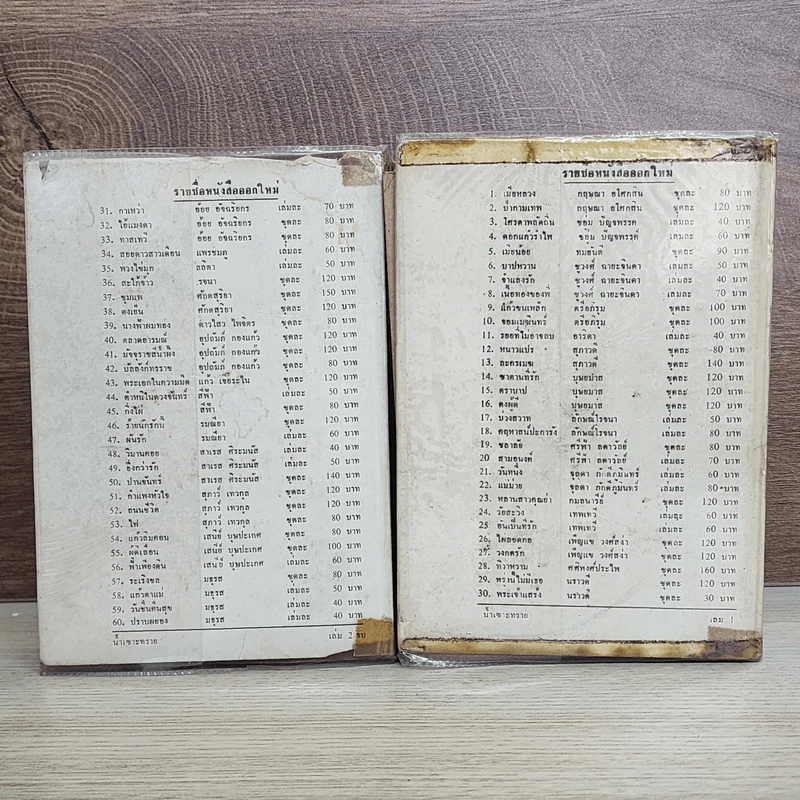 รายชื่อหนังสือออกใหม่
31. กาเหว่า อ้อย อัจฉริยกร เล่มละ 70 บาท
32. ไอ้แมงดา อ้อย อัจฉริยกร ชุดละ 80 บาท
33. ทาสเทวี อ้อย อัจฉริยกร ชุดละ 80 บาท
34. สอยดาวสาวเดือน แพรชมภู เล่มละ 60 บาท
35. พวงไข่มุก ลลิตา เล่มละ 50 บาท
36. สะใภ้จ้าว รจนา ชุดละ 120 บาท
37. ชุมแพ ศักดิ์สุริยา ชุดละ 150 บาท
38. ดงเย็น ศักดิ์สุริยา ชุดละ 120 บาท
39. นางฟ้าผมทอง ดาวไสว ไพจิตร ชุดละ 80 บาท
40. ตลาดอารมณ์ อุปถัมภ์ กองแก้ว ชุดละ 120 บาท
41. มัจจุราชสีน้ำผึ้ง อุปถัมภ์ กองแก้ว ชุดละ 120 บาท
42. บัลลังก์ทรราช อุปถัมภ์ กองแก้ว ชุดละ 80 บาท
43. พระเอกในความมืด แก้ว เจียระไน ชุดละ 120 บาท
44. ตำหนิในดวงจันทร์ สีฟ้า เล่มละ 50 บาท
45. กิ่งไผ่ สีฟ้า ชุดละ 80 บาท
46. ร้ายนักรักนี้ รมณียา ชุดละ 120 บาท
47. ฝนรัก รมณียา เล่มละ 60 บาท
48. วิมานคอย สาเรส ศิระมนัส เล่มละ 40 บาท
49. ยิ่งกว่ารัก สาเรส ศิระมนัส เล่มละ 50 บาท
50. ปานจันทร์ สาเรส ศิระมนัส ชุดละ 140 บาท
51. กำแพงหัวใจ สุภาว์ เทวกุล ชุดละ 120 บาท
52. ถนนชีวิต สุภาว์ เทวกุล ชุดละ 120 บาท
53. ไฟ สุภาว์ เทวกุล ชุดละ 80 บาท
54. แก้วลืมคอน เสนีย์ บุษปะเกศ ชุดละ 80 บาท
55. ผีดิเถื่อน เสนีย์ บุษปะเกศ ชุดละ 100 บาท
56. ฟ้าเพียงดิน เสนีย์ บุษปะเกศ เล่มละ 60 บาท
57. ระเริงชล มธุรส ชุดละ 80 บาท
58. แก้วตาแม่ มธุรส เล่มละ 50 บาท
59. วันชื่นคืนสุข มธุรส เล่มละ 40 บาท
60. ปราบพยอง มธุรส เล่มละ 40 บาท
น้ำเซาะทราย เล่ม 2 จบ
รายชื่อหนังสือออกใหม่
1. เมียหลวง กฤษณา อโศกสิน ชุดละ 80 บาท
2. น้ำกามเทพ กฤษณา อโศกสิน ชุดละ 120 บาท
3. โศรดาพลัดถิ่น ชอุ่ม ปัญจพรรค์ เล่มละ 40 บาท
4. ดอกแก้วรำไพ ชอุ่ม ปัญจพรรค์ เล่มละ 60 บาท
5. เมียน้อย ทมยันตี ชุดละ 90 บาท
6. บาปหวาน ชูวงศ์ ฉายะจินดา เล่มละ 50 บาท
7. จำเลยรัก ชูวงศ์ ฉายะจินดา เล่มละ 40 บาท
8. เนื้อทองของพี่ ชูวงศ์ ฉายะจินดา เล่มละ 70 บาท
9. แก้วขนเหล็ก ตรีอภิรุม ชุดละ 100 บาท
10. จอมเมฆินทร์ ตรีอภิรุม ชุดละ 100 บาท
11. รอยที่ไม่อาจลบ อาริตา เล่มละ 40 บาท
12. หนาวแปร สุภาวดี ชุดละ 80 บาท
13. ละครเมฆ สุภาวดี ชุดละ 140 บาท
14. ซาตานที่รัก บุษยมาส ชุดละ 120 บาท
15. ตราบาป บุษยมาส ชุดละ 120 บาท
16. คงผู้ดี บุษยมาส ชุดละ 120 บาท
17. บ่วงสวาท ลักษณ์โรจนา เล่มละ 50 บาท
18. คฤหาสน์ปะการัง ลักษณ์โรจนา ชุดละ 80 บาท
19. ชลาลัย ศรีฟ้า ลดาวัลย์ ชุดละ 80 บาท
20. สามอนงค์ ศรีฟ้า ลดาวัลย์ เล่มละ 70 บาท
21. วันหนึ่ง ชุลดา ภักดีภูมินทร์ เล่มละ 60 บาท
22. แม่ม่าย ชุลดา ภักดีภูมินทร์ ชุดละ 80 บาท
23. หลานสาวคุณย่า กมลนารีย์ ชุดละ 120 บาท
24. วัลสะวิง เทพเทวี เล่มละ 60 บาท
25. อันเป็นที่รัก เทพเทวี เล่มละ 60 บาท
26. ไผ่ลอดกอ เพ็ญแข วงศ์สง่า ชุดละ 120 บาท
27. วงกตรัก เพ็ญแข วงศ์สง่า เล่มละ 60 บาท
28. ทิวาหวาม ศศิพงศ์ประไพ ชุดละ 160 บาท
29. พรุ่งนี้ไม่มีเธอ นราวดี ชุดละ 120 บาท
30. พระเจ้าแสร้ง นราวดี ชุดละ 30 บาท
น้ำเซาะทราย เล่ม 1